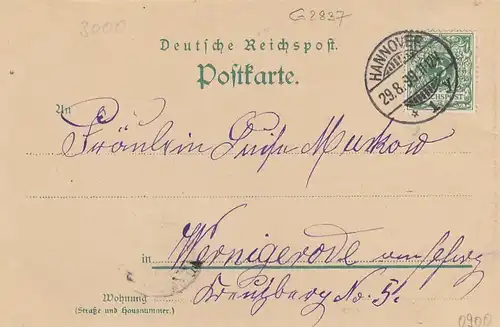 3000
G2837
Deutsche Reichspost.
Postkarte.
HANNOVER
29.8.99.
An
Fräulein Luise Murkow
in Wernigerode am Harz
Kreuzberg No. 51.
Wohnung
(Straße und Hausnummer.)
0900